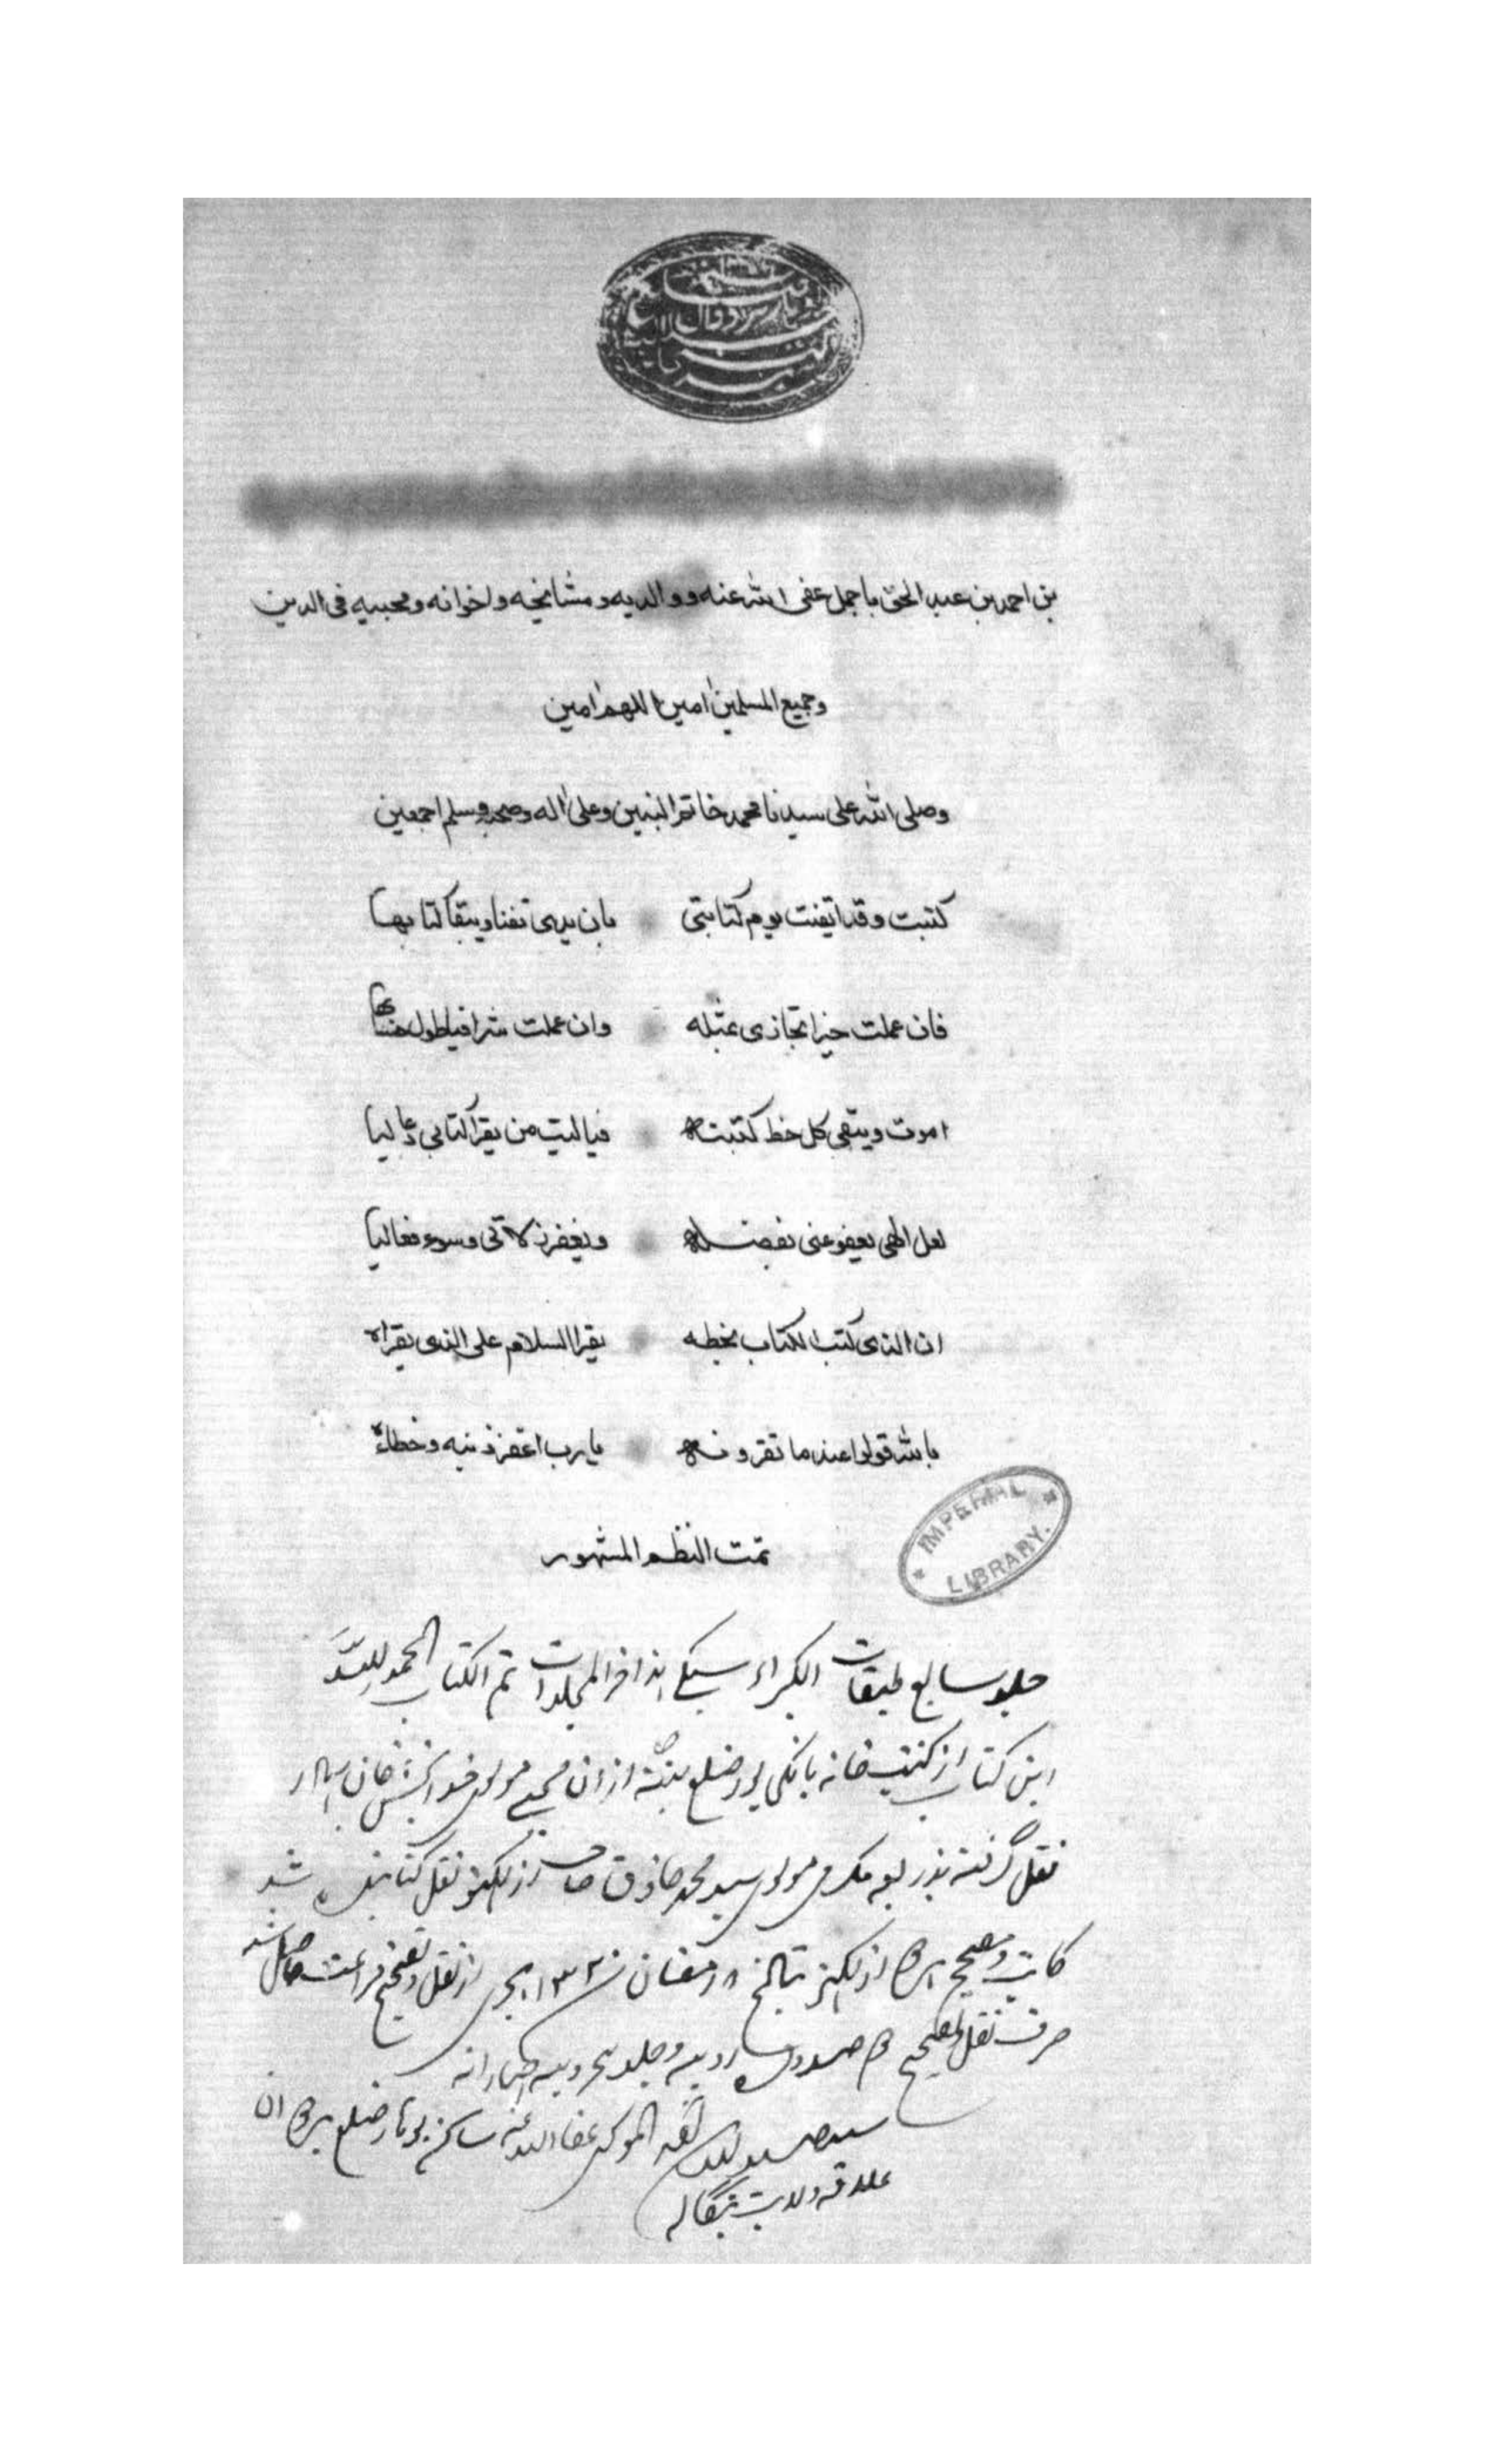 بن احمد بن عبد الحق باجمل عفى الله عنه ووالديه ومشايخه واخوانه ومحبيه فى الدين
وجميع المسلمين امين اللهم امين
وصلى الله على سيدنا محمد خاتم النبين وعلى اله وصحبه وسلم اجمعين
كتبت وقد ايقنت يوم كتابتى بان يدى تفنا ويبقا كتابها
فان عملت خيرا تجازى بمثله وان عملت شرا فياطول حسابها
اموت ويبقى كل خط كتبته فياليت من يقرا كتابى دعا ليا
لعل الهى يعفو عنى بفضله ويغفر زلاتى وسوء فعاليا
ان الذى كتب الكتاب بخطه يقرا السلام على الذى يقراه
بالله قولوا عند ما تقرونه يارب اغفر ذنبه وخطاه
IMPERIAL LIBRARY.
تمت النظم المشهور
جلد سابع طبقات الكبراء سبكى هذا اخر المجلدات تم الكتاب الحمد لله
اين كتاب از كتب خانه بانكى پور ضلع پتنه از ان محبى مولوى خدا بخش خان بهادر
نقل گرفته بذريعه مكرمى مولوى سيد محمد صاحب از لكهنو نقل كنانيده شد
كاتب ومصحح از لكهنو بتاريخ ٨ رمضان ١٣٢ هجرى از نقل وتصحيح فراغت حاصل شد
صرف نقل وتصحيح روپيه وجلد روپيه انه
عفا الله عنه ساكن بوهار ضلع بردوان
علاقه ولايت بنگاله